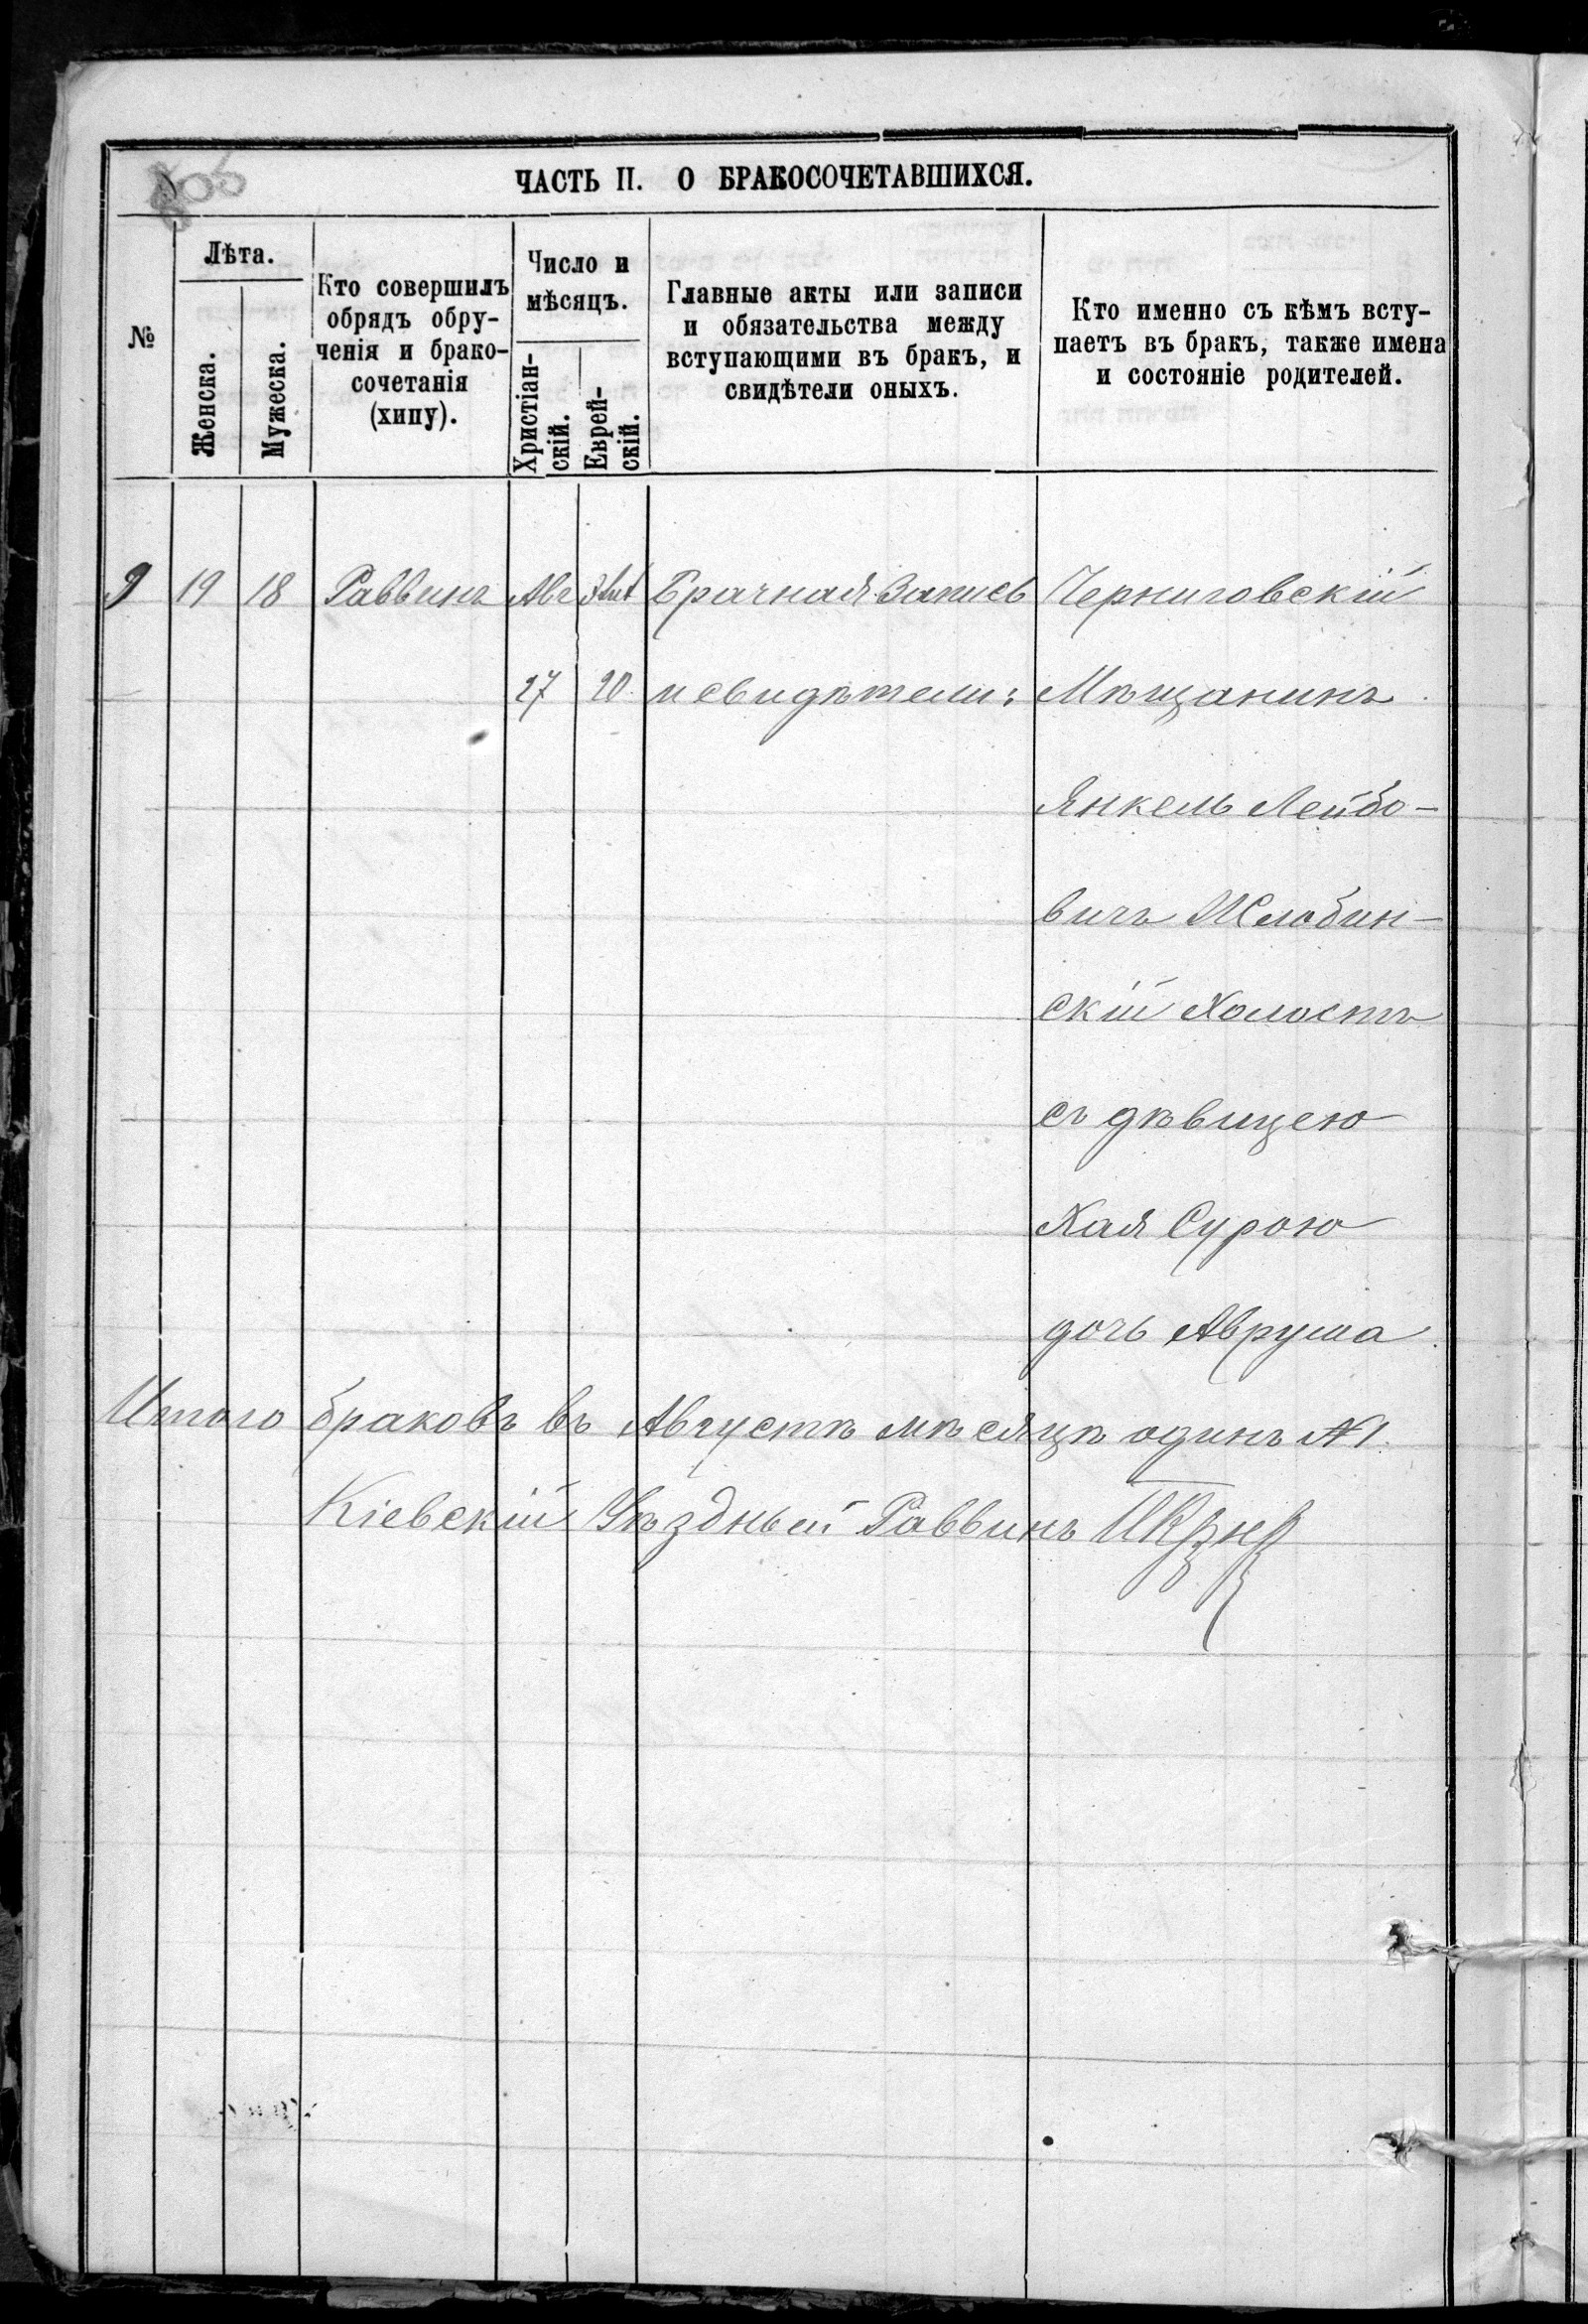 ЧАСТЬ II. О БРАКОСОЧЕТАВШИХСЯ.
№
Лѣта.
Женска.
Мужеска.
Кто совершилъ
обрядъ обру-
ченія и брако-
сочетанія
(хипу).
Число и
мѣсяцъ.
Христіан-
скій.
Еврей-
скій.
Главные акты или записи
и обязательства между
вступающими въ бракъ, и
свидѣтели оныхъ.
Кто именно съ кѣмъ всту-
паетъ въ бракъ, также имена
и состояніе родителей.
9 19 18 Раввинъ Авг Брачная запись Черниговскій
27 20 и свидѣтели: Мѣщанинъ
Янкель Лейбо-
вичъ Жлобин-
скій Холостъ
съ дѣвицею
Хая Сурою
дочь Аврума
Итого браковъ въ Августѣ мѣсяцѣ одинъ №1.
Кіевскій Уѣздный Раввинъ